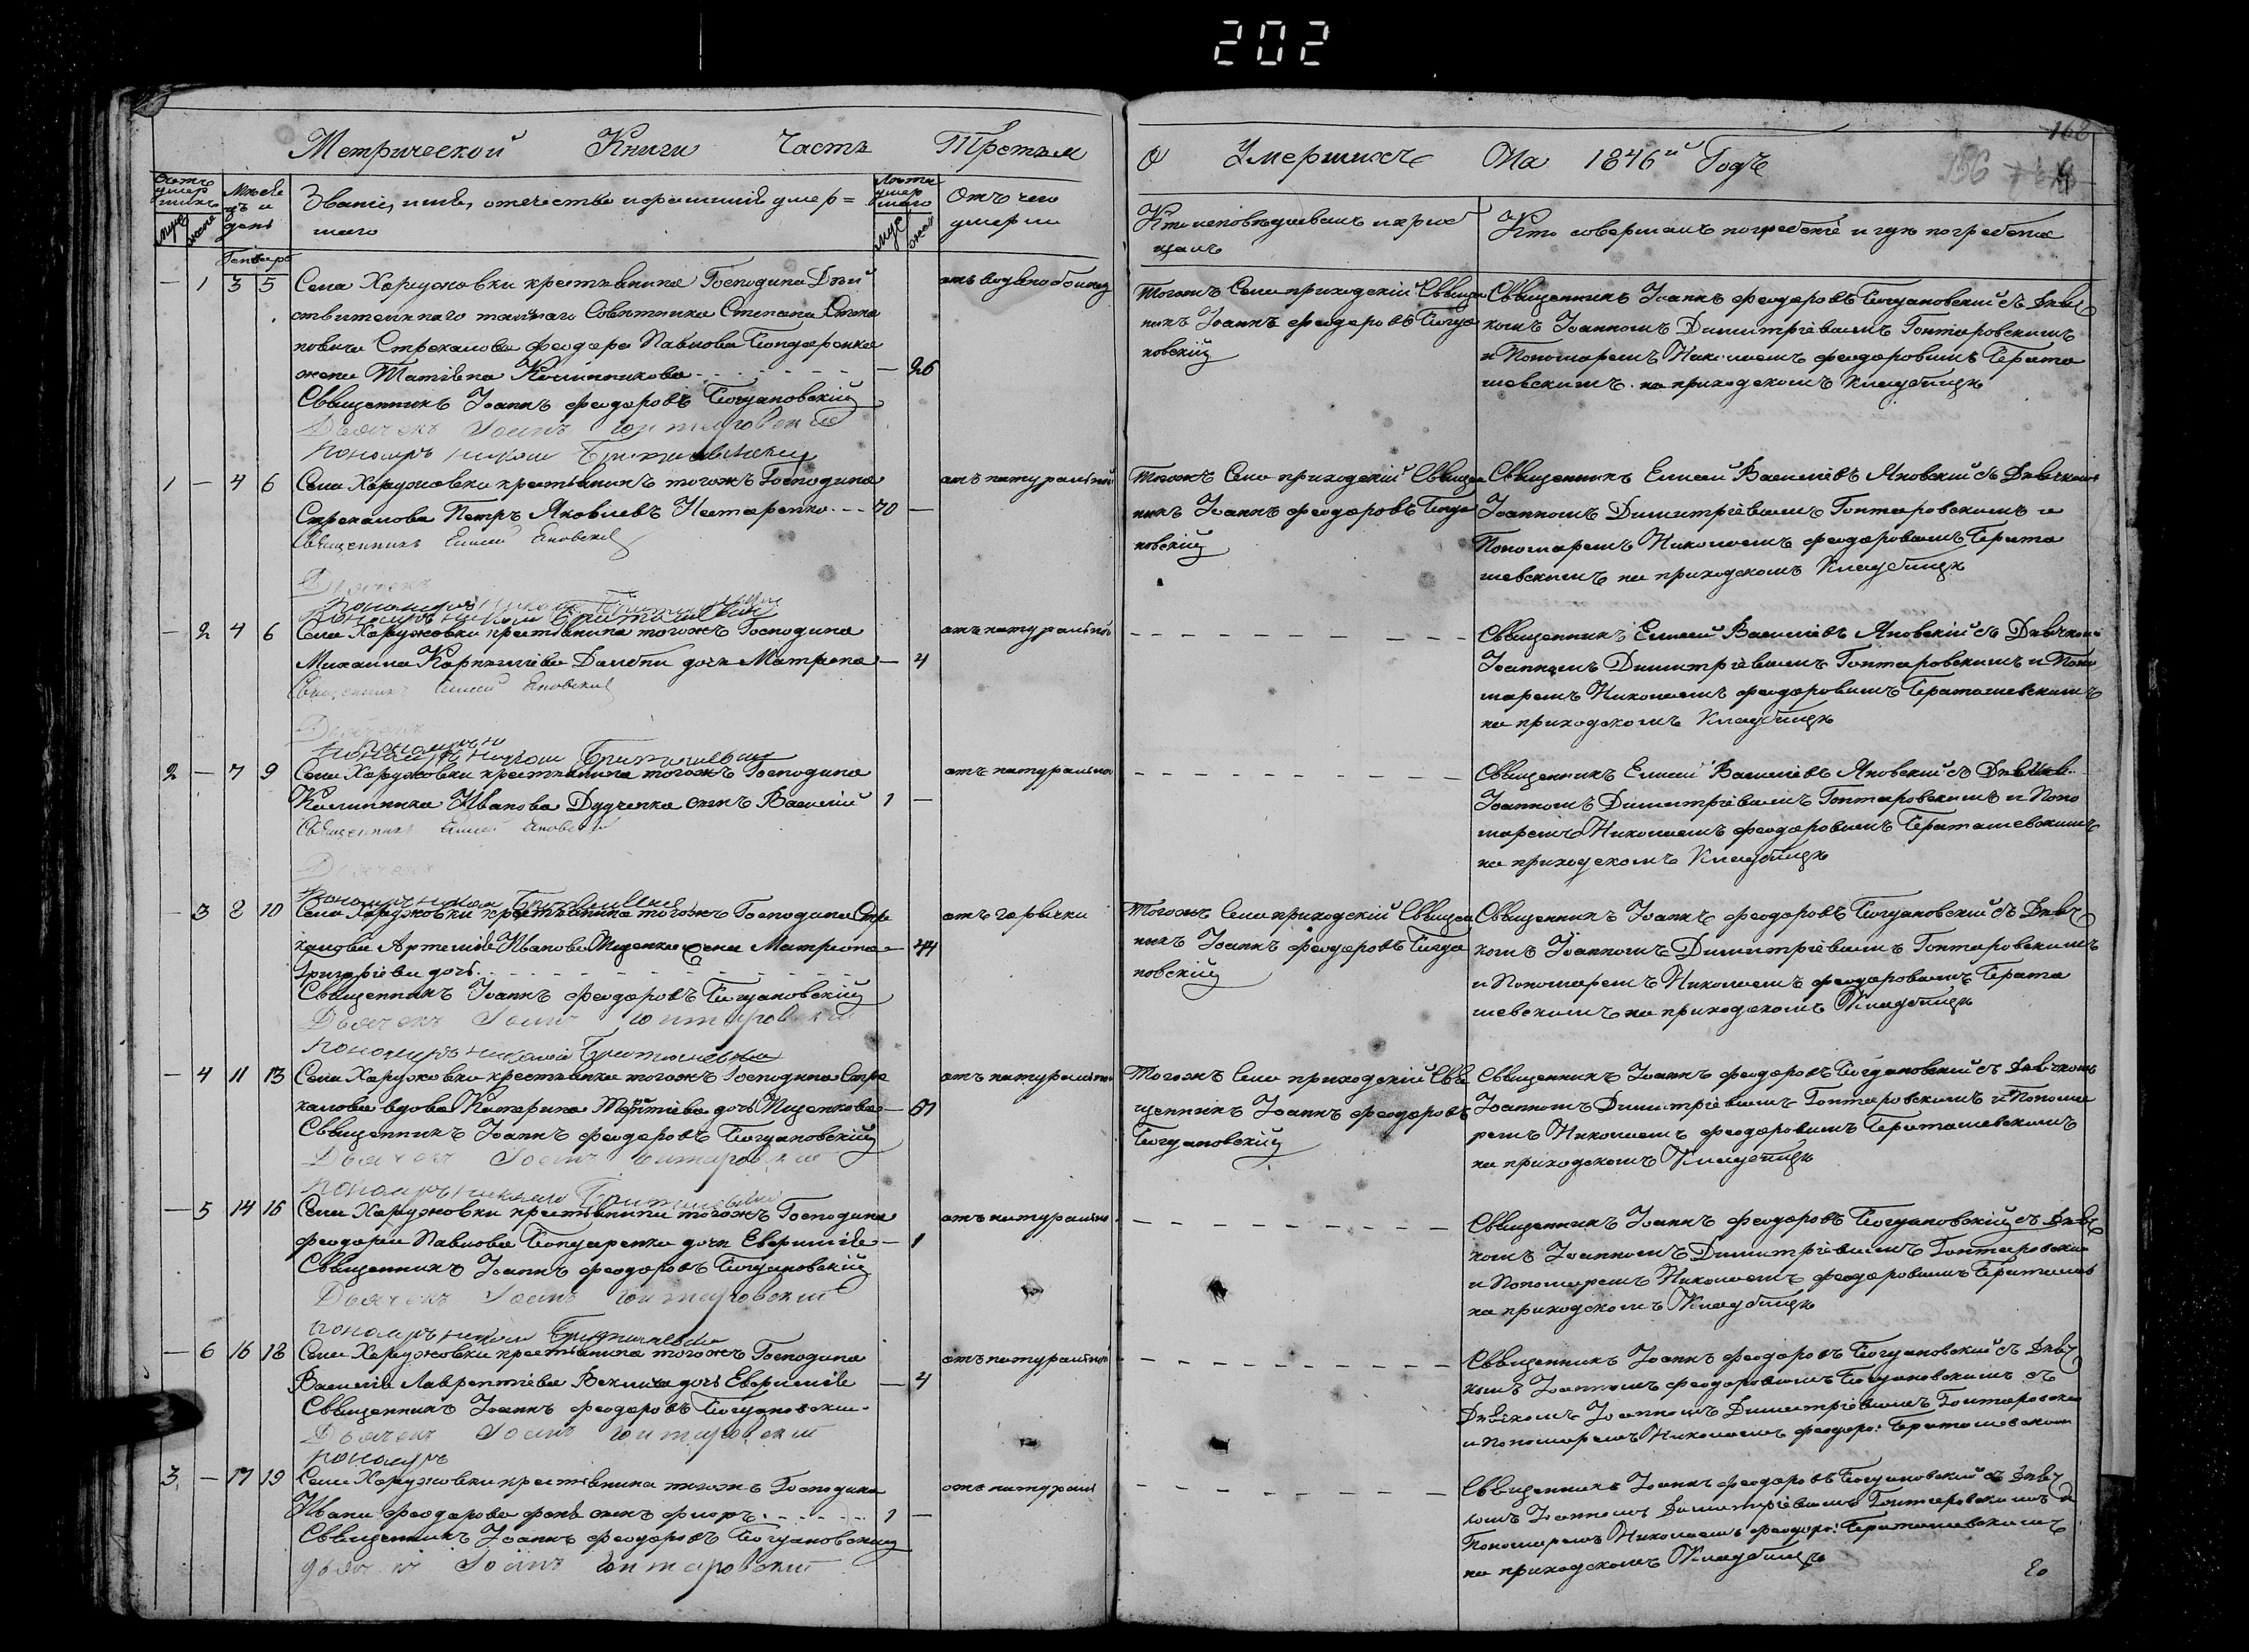 202
Метрической Книги Часть Третья
О Умершихъ На 1846й Годъ
156
Счетъ умер шихъ
муж женс
Месяцъ и день
Званіе, имя, отечество и фамилія умер=
шаго
Лѣта умер шаго
муж женс
Отъ чего
умерли
Кто исповѣдывалъ и приоб
щалъ
Кто совершалъ погребеніе и гдѣ погребены
Генваря
— 1 3 5
Села Харужовки крестьянина Господина Дѣй
ствительнаго тайнаго Совѣтника Степана Степа
новича Стрекалова Феодора Павлова Бондаренка
жена Татіяна Калинникова — 26
Священникъ Іоаннъ Феодоровъ Богдановскій
Дьячекъ Іоаннъ Гонтаровскій
Пономарь Николай
отъ
Тогожъ Села приходскій Священ
никъ Іоаннъ Феодоровъ Богда
новскій
Священникъ Іоаннъ Феодоровъ Богдановскій съ Дьяч
комъ Іоанномъ Димитріевымъ Гонтаровскимъ
и Пономаремъ Николаемъ Феодоровымъ Брата
шевскимъ на приходскомъ Кладбищѣ
1 — 4 6
Села Харужовки крестьянинъ тогожъ Господина
Стрекалова Петръ Яковлевъ Нестеренко 70 —
Священникъ Елисей Яновскій
Дьячекъ
Пономарь Николай
отъ натуральной
Тогожъ Села приходскій Священ
никъ Іоаннъ Феодоровъ Богда
новскій
Священникъ Елисей Васильевъ Яновскій съ Дьячкомъ
Іоанномъ Димитріевымъ Гонтаровскимъ и
Пономаремъ Николаемъ Феодоровымъ Брата
шевскимъ на приходскомъ Кладбищѣ
— 2 4 6
Села Харужовки крестьянина тогожъ Господина
Михаила дочь Матрона — 4
Священникъ Елисей Яновскій
Дьячекъ
Пономарь Николай
отъ натуральной
Священникъ Елисей Васильевъ Яновскій съ Дьячкомъ
Іоанномъ Димитріевымъ Гонтаровскимъ и Поно
маремъ Николаемъ Феодоровымъ Браташевскимъ
на приходскомъ Кладбищѣ
2 — 7 9
Села Харужовки крестьянина тогожъ Господина
Калинника Иванова Дудченка сынъ Василій 1 —
Священникъ Елисей Яновскій
Дьячекъ
Пономарь Николай
отъ натуральной
Священникъ Елисей Васильевъ Яновскій съ
Іоанномъ Димитріевымъ Гонтаровскимъ и Поно
маремъ Николаемъ Феодоровымъ Браташевскимъ
на приходскомъ Кладбищѣ
— 3 8 10
Села Харужовки крестьянина тогожъ Господина Стре
калова Артемія Иванова Ищенка жена Матрона — 44
Григоріева дочь
Священникъ Іоаннъ Феодоровъ Богдановскій
Дьячекъ Іоаннъ Гонтаровскій
Пономарь Николай
отъ горячки
Тогожъ Села приходскій Священ
никъ Іоаннъ Феодоровъ Богда
новскій
Священникъ Іоаннъ Феодоровъ Богдановскій съ Дьяч
комъ Іоанномъ Димитріевымъ Гонтаровскимъ
и Пономаремъ Николаемъ Феодоровымъ Брата
шевскимъ на приходскомъ Кладбищѣ
— 4 11 13
Села Харужовки крестьянка тогожъ Господина Стре
калова вдова Катерина дочь Ищенкова — 51
Священникъ Іоаннъ Феодоровъ Богдановскій
Дьячекъ Іоаннъ Гонтаровскій
Пономарь Николай
отъ натуральной
Тогожъ Села приходскій Свя
щенникъ Іоаннъ Феодоровъ
Богдановскій
Священникъ Іоаннъ Феодоровъ Богдановскій съ Дьячкомъ
Іоанномъ Димитріевымъ Гонтаровскимъ и Понома
ремъ Николаемъ Феодоровымъ Браташевскимъ
на приходскомъ Кладбищѣ
— 5 14 16
Села Харужовки крестьянина тогожъ Господина
Феодора Павлова Бондаренка дочь Евфимія — 1
Священникъ Іоаннъ Феодоровъ Богдановскій
Дьячекъ Іоаннъ Гонтаровскій
Пономарь Николай
отъ натуральной
Священникъ Іоаннъ Феодоровъ Богдановскій съ Дьяч
комъ Іоанномъ Димитріевымъ Гонтаровским
и Пономаремъ Николаемъ Феодоровымъ
на приходскомъ Кладбищѣ
— 6 16 18
Села Харужовки крестьянина тогожъ Господина
Василія Лаврентіева дочь Евфимія — 4
Священникъ Іоаннъ Феодоровъ Богдановскій
Дьячекъ Іоаннъ Гонтаровскій
Пономарь
отъ натуральной
Священникъ Іоаннъ Феодоровъ Богдановскій съ Дьяч
комъ Іоанномъ Феодоровымъ Богдановскимъ съ
Дьячкомъ Іоанномъ Димитріевымъ Гонтаровским
и Пономаремъ Николаемъ Феодоро: Браташевским
3 — 17 19
Села Харужовки крестьянина тогожъ Господина
Ивана Феодорова сынъ 1 —
Священникъ Іоаннъ Феодоровъ Богдановскій
Дьячекъ Іоаннъ Гонтаровскій
отъ натурал
Священникъ Іоаннъ Феодоровъ Богдановскій съ Дьяч
комъ Іоанномъ Димитріевымъ Гонтаровскимъ и
Пономаремъ Николаемъ Феодоро: Браташевскимъ
на приходскомъ Кладбищѣ